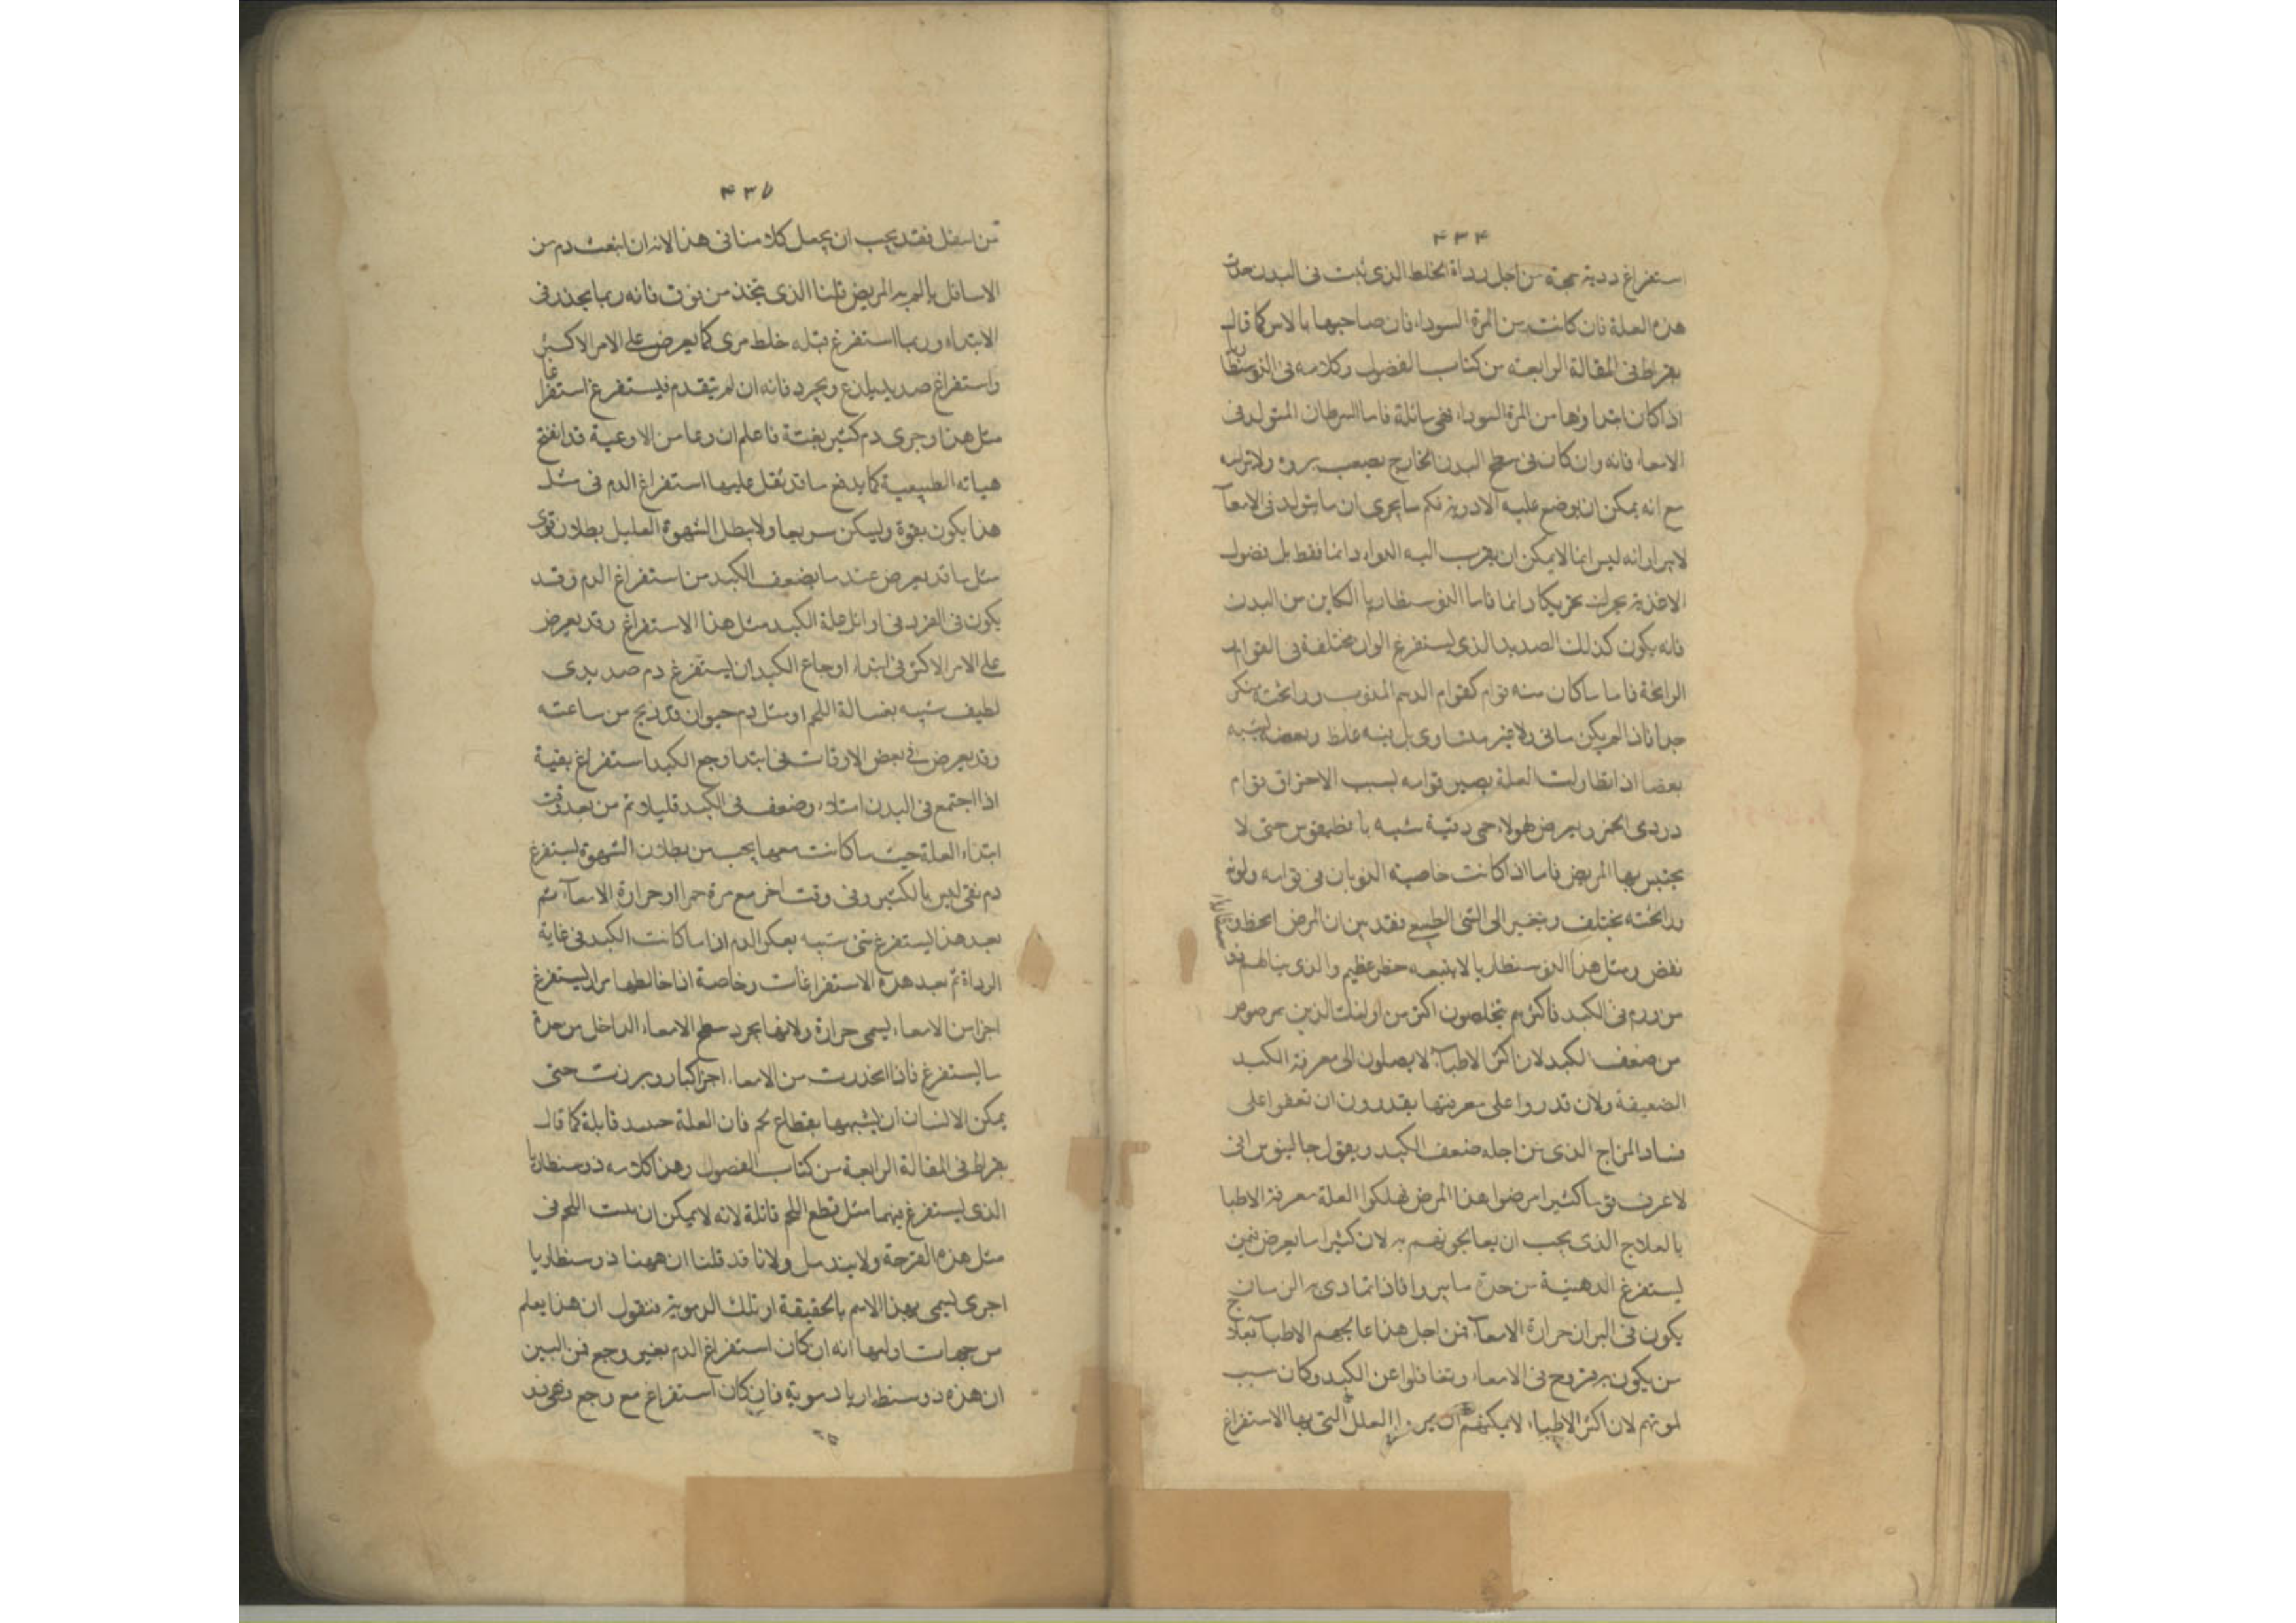 ۴۳۴
استفراغ ردية سمجة من اجل رداة الخلط الذى ثبت فى البدن حدث
هذه العلة فان كانت من المرة السوداء فان صاحبها بالامر كما قال
بقراط فى المقالة الرابعة من كتاب الفصول وكلامه فى الذوسنطا
اذا كان ابتداوها من المرة السوداء فهى فاما السرطان المتولد فى
الامعاء فانه وان كان فى سطح البدن الخارج يصعب بروه ولا
مع انه يمكن ان يوضع عليه الادوية فكم ما يجرى ان ما يتولد فى الامعآ
لا يبرا وانه ليس انما لا يمكن ان يقرب اليه الدواء دائما فقط بل فضول
الاغذية تحركه تحريكا دائما فاما الذوسنطاريا الكاين من البدن
فانه يكون كذلك الصديد الذى يستفرغ الوان مختلفة فى القوام
الرائحة فاما ما كان منه قوام كقوام الدسم المذوب ورائحته منكرة
جدا فاذا لم يكن صافى ولا متساوى بل فيه غلظ وبعضه يشبه
بعضا اذا تطاولت العلة يصير قوامه لسبب الاحتراق قوام
دردى الخمر ويعرض لهولاء حمى دقيقة شبه حتى لا
يحتبس بها المريض فاما اذا كانت خاصية الذوبان فى قوامه ولونه
ورائحته يختلف ويتغير الى الشى الطبيعى فقد بين ان المرض
نقص ومثل هذا الذوسنطاريا لا يتبعه خطر عظيم والذى ينالهم
من ورم فى الكبد فاكثرهم يتخلصون اكثر من اولئك الذين يمرضون
من ضعف الكبد لان اكثر الاطبآء لا يصلون الى معرفة الكبد
الضعيفة ولان قدروا على معرفتها يقدرون ان تقفوا على
فساد المزاج الذى من اجله ضعف الكبد ويقول جالينوس انى
لاعرف قوما كثيرا مرضوا هذا المرض فهلكوا لقلة معرفة الاطبا
بالعلاج الذى يجب ان يعالجونهم به لان كثيرا ما يعرض فيمن
يستفرغ الدهنية من حدة ما فاذا تمادى به الزمان
يكون فى البراز حرارة الامعآء فمن اجل هذا عالجهم الاطبآ
من يكون به قروح فى الامعاء وتغافلوا عن الكبد وكان سبب
لموتهم لان اكثر الاطباء لا يمكنهم ان العلل التى بها الاستفراغ
۴۳۵
من اسفل فقد يجب ان يجعل كلامنا فى هذا لانه ان انبعث دم من
الاسافل المريض الذى يتخذ من فانه ربما يحدث فى
الابتداء وربما استفرغ قبله خلط مرى كما يعرض على الامر الاكثر
واستفراغ صديد يلذع ويجرد فانه ان لم يتقدم فيستفرغ استفرا
مثل هذا وجرى دم كثير بغتة فاعلم ان وعا من الاوعية قد انفتح
هياته الطبيعية كما يدفع ما قد ثقل عليها استفراغ الدم فى مثل
هذا يكون بقوة وليكن سريعا ولا يبطل الشهوة العليل بطلان قوى
مثل ما قد يعرض عند ما يضعف الكبد من استفراغ الدم وقد
يكون فى الفرد فى اوائل علة الكبد مثل هذا الاستفراغ وقد يعرض
على الامر الاكثر فى ابتداء اوجاع الكبد ان يستفرغ دم صديدى
لطيف شبيه بغسالة اللحم او مثل دم حيوان قد ذبح من ساعته
وقد يعرض فى بعض الاوقات فى ابتدا وجع الكبد استفراغ بقية
اذا اجتمع فى البدن امتلاء وضعف فى الكبد قليلا ثم من بعد وقت
ابتداء العلة حيث ما كانت معها يجب من بطلان الشهوة يستفرغ
دم نقى ليس بالكثير وفى وقت اخر مع مرة حمرا او حرارة الامعآء ثم
بعد هذا يستفرغ شى شبيه بعكر الدم اذا ما كانت الكبد فى غاية
الرداة ثم بعد هذه الاستفراغات وخاصة اذا خالطها مرار يستفرغ
اجزا من الامعاء يسمى حرارة ولانها يجرد سطح الامعاء الداخل من حدة
ما يستفرغ فاذا انحدرت من الامعاء اجزا كبار وبرزت حتى
يمكن الانسان ان يشبهها بقطاع لحم فان العلة قاتلة كما قال
بقراط فى المقالة الرابعة من كتاب الفصول وهذا كلامه ذوسنطاريا
الذى يستفرغ فيهما مثل قطع اللحم قاتلة لانه لا يمكن ان ينبت اللحم فى
مثل هذه القرحة ولا يندمل ولانا قد قلنا ان ههنا ذوسنطاريا
اخرى يسمى بهذا الاسم بالحقيقة او تلك الدموية فنقول ان هذا يعلم
من جهات اولها انه ان كان استفراغ الدم بغير وجع فمن البين
ان هذه ذوسنطاريا دموية فان كان استفراغ مع وجع فهى